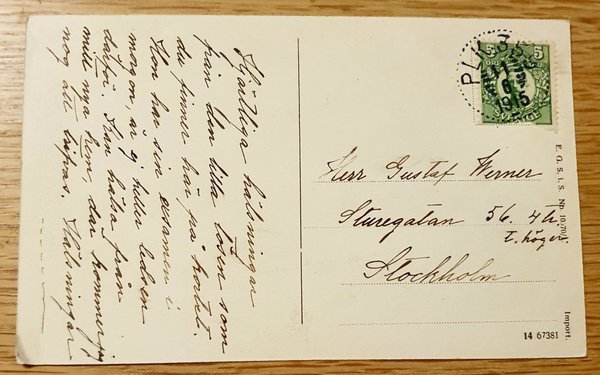 Hjärtliga hälsningar
från den lilla tösen som
du finner här på kortet.
Hon har sen examen i
morgon, är ej heller ledsen
därför. Kan hälsa från
mitt nya hem där kommer jag
nog att
Hälsningar
Herr Gustaf Werner
Sturegatan 56. 4 tr.
t. höger.
Stockholm
PLK
1915
5
5
E. G. S. i. S.
Import.
14 67381